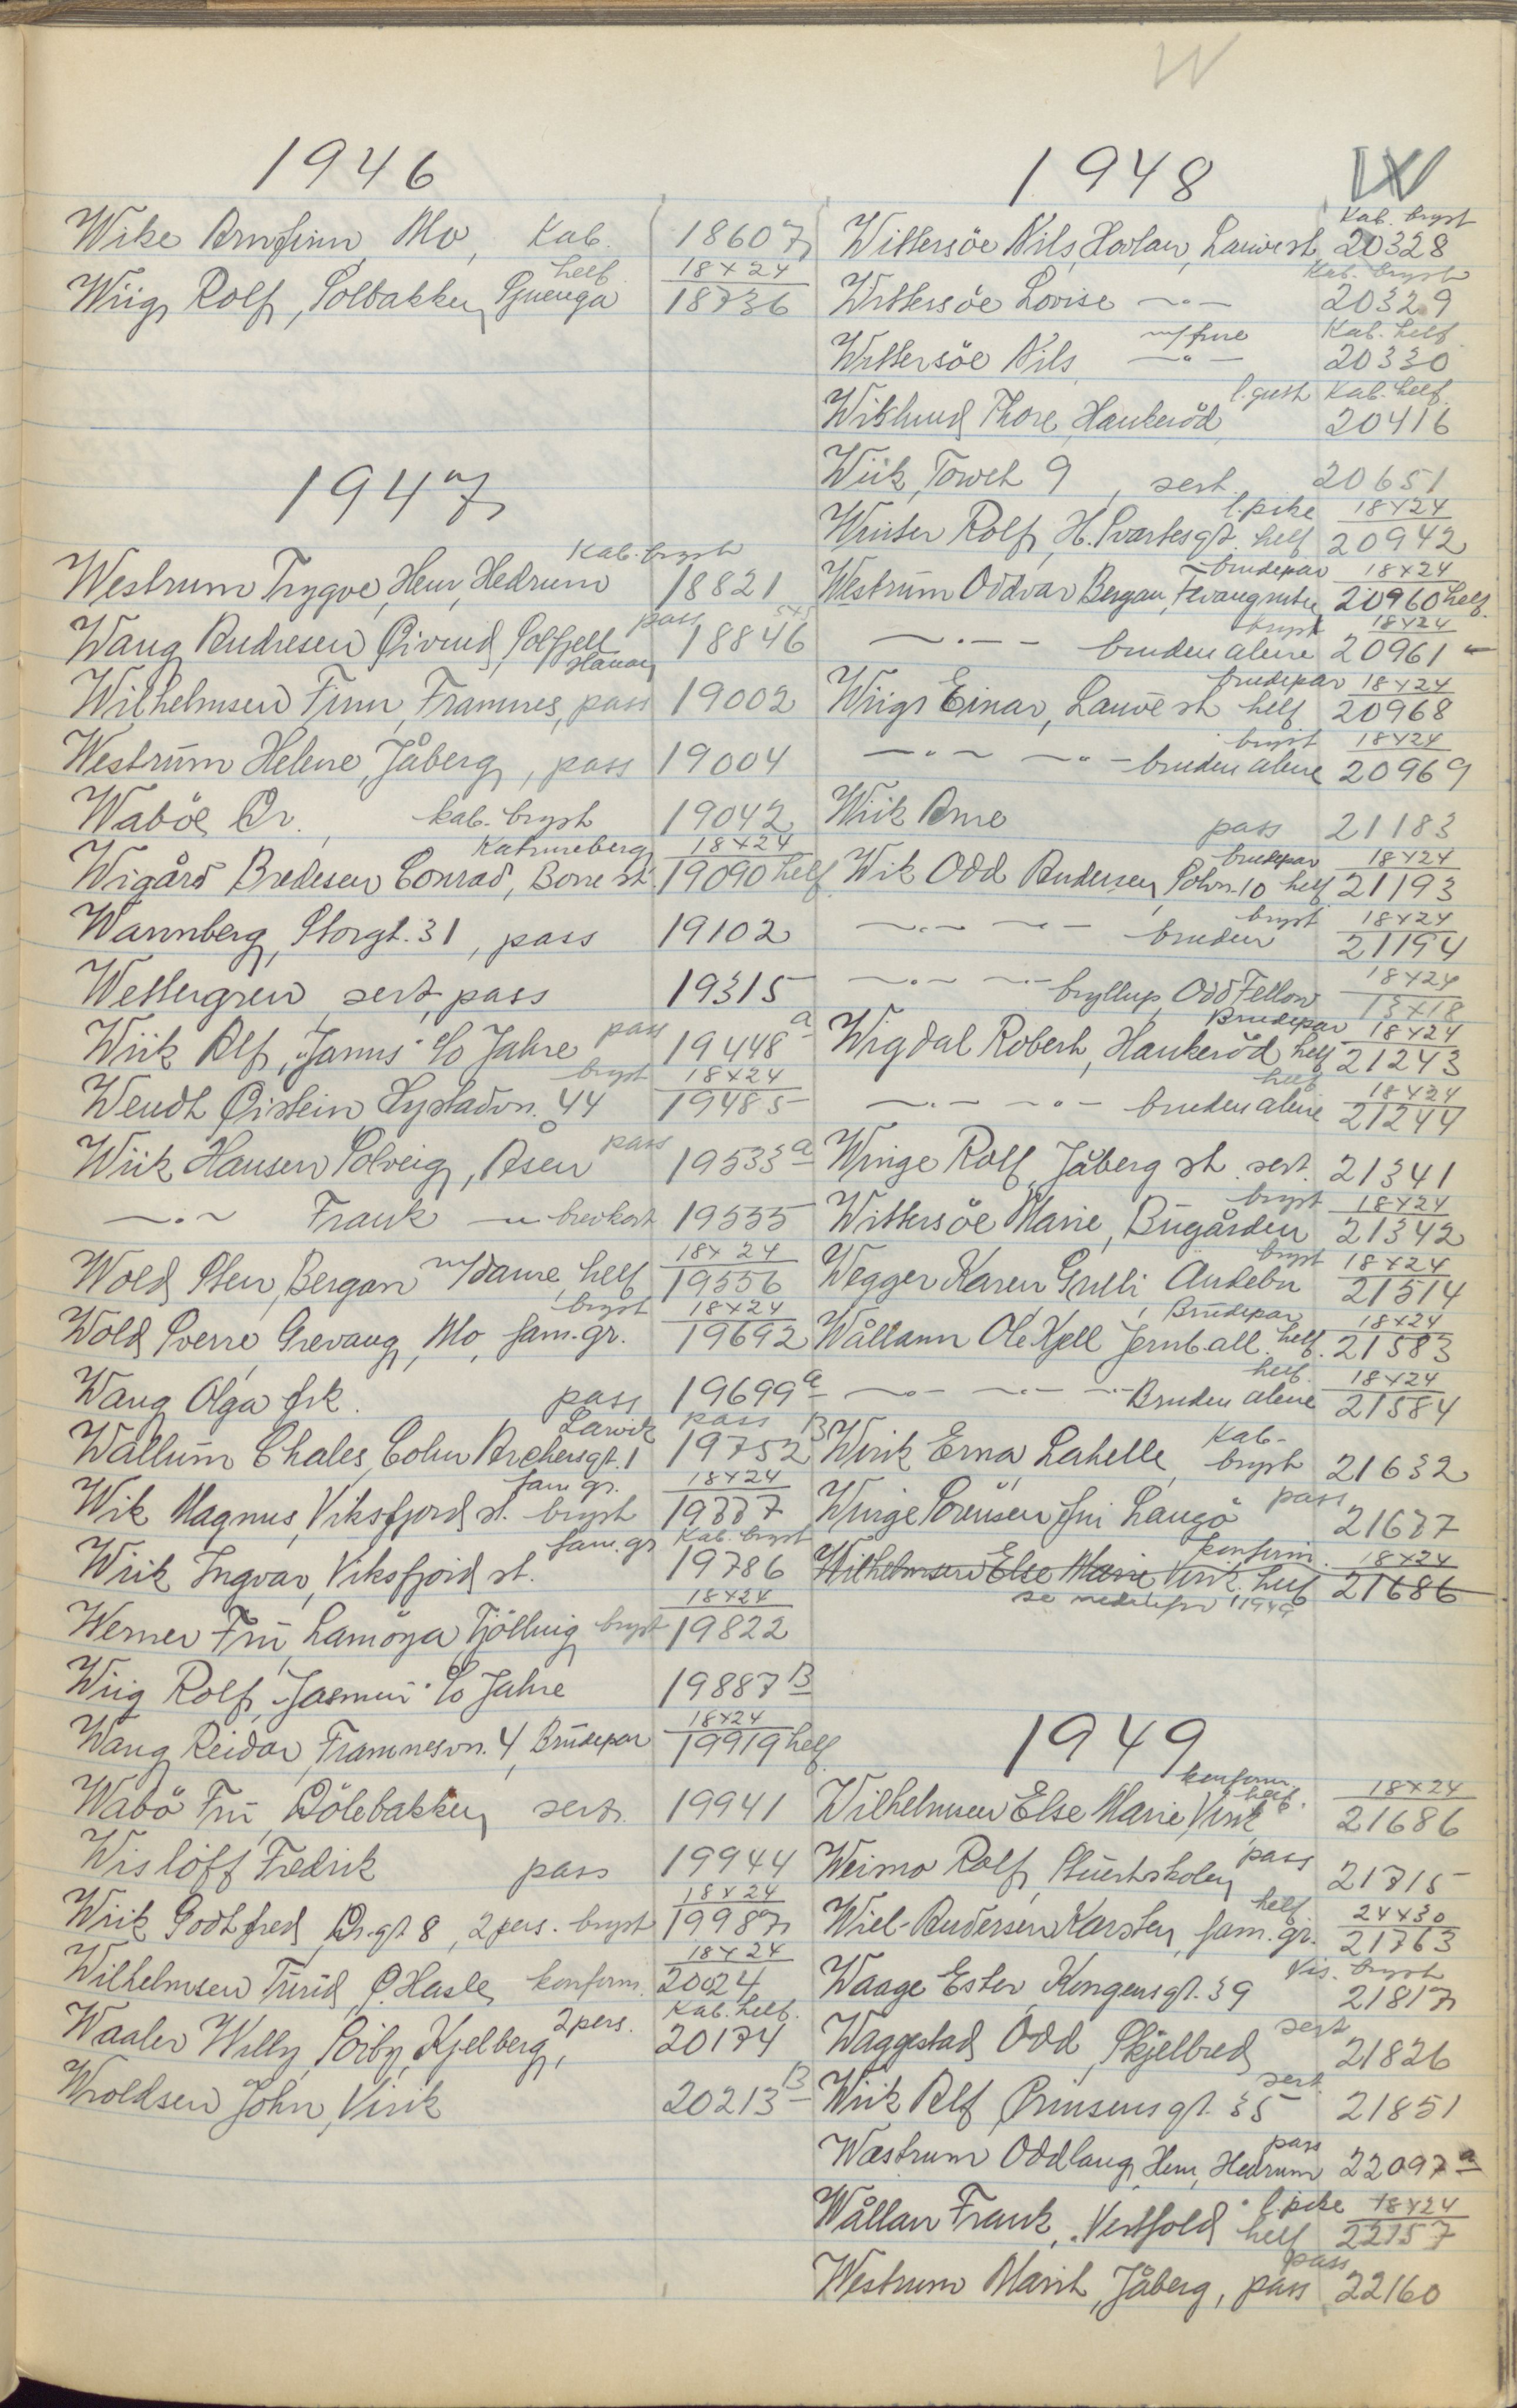 W
W
1946
Wike Arnfinn, Mo, Kab. 18607
Wiig Rolf, Solbakken, helf 18x24 18736
1947
Westrum Trygve, Hem, Hedrum Kab. bryst 18821
Wang Andresen Øivind, Solfjell pass 18846
Wilhelmsen Finn, Framnes, pass 19002
Westrum Helene, Jåberg, pass 19004
Waböe Dr., kab. bryst 19042
Wigård Bredesen Conrad, Borre st. Katrineberg 18x24 19090 helf
Wannberg, Storgt. 31, pass 19102
Wettergren, sert, pass 19315
Wiik Alf, "Janus" c/o Jahre pass 19448 a
Wendt Øistein Hystadvn. 44 bryst 18x24 19485
Wiik Hansen Solveig, Åsen pass 19533 a
—"— Frank —"— brevkort 19535
Wold Sten, Bergan m/dame, helf 18x24 19556
Wold Sverre Grevang, Mo, fam. gr. bryst 18x24 19692
Wang Olga frk. pass 19699 a
Wallum Chales, Colin Archersgt. 1 Larvik pass 19752 B
Wik Magnus, Viksfjord st. fam gr. bryst 18x24 19777
Wiik Ingvar, Viksfjord st. fam. gr. Kab. bryst 19786
Werner Fru, Lamöya, Tjölling bryst 18x24 19822
Wiig Rolf, "Jasmin" c/o Jahre 19887 B
Wang Reidar, Framnesvn. 4, Brudepar 18x24 19919 helf
Wabö Fru, Dölebakken, sert. 19941
Wislöff Fredrik pass 19944
Wiik Godtfred, Dr.gt 8, 2 pers. bryst 18x24 19987
Wilhelmsen Turid, Ø. Hasle, konferm. 18x24 20024
Waaler Willy, Söiby, Kjelberg, 2 pers. Kab. helf. 20174
Wroldsen John, Virik 20213 B
1948
Wittersöe Nils, Hovland, Lauve st. Kab. bryst 20328
Wittersöe Lovise —"— Kab. bryst 20329
Wittersöe Nils —"— m/frue Kab. helf. 20330
Wiklund Thore, Haukeröd, l. gutt Kab. helf. 20416
Wiik, Torvet 9, sert. 20651
Winter Rolf, H. Svartesgt. l. pike helf 18x24 20942
Westrum Oddvar Bergan, brudepar 18x24 20960 helf.
—"— bruden alene bryst 18x24 20961
Wiigs Einar, Lauve st. brudepar helf 18x24 20968
—"— —"— bruden alene bryst 18x24 20969
Wiik Arne pass 21183
Wik Odd Andersen, brudepar helf 18x24 21193
—"— —"— bruden bryst 18x24 21194
—"— —"— bryllup, Odd Fellow 18x24 13x18
Wigdal Robert, Haukeröd Brudepar helf 18x24 21243
—"— —"— bruden alene helf 18x24 21244
Winge Rolf, Jåberg st. sert. 21341
Wittersöe Marie, Bugården bryst 18x24 21342
Wegger Karen Gulli, Andebu bryst 18x24 21514
Wållann Ole Kjell Jernb. all. Brudepar helf. 18x24 21583
—"— —"— Bruden alene helf. 18x24 21584
Wirik Erna, Lahelle, Kab- bryst 21632
Winge Sörensen fru, Langö pass 21677
Wilhelmsen Else Marie Virik konferm. helf 18x24 21686
se nedenfor 1949
1949
Wilhelmsen Else Marie Virik konferm. helf. 18x24 21686
Weimo Rolf, Stuertskolen pass 21715
Wiel-Andersen Karsten, fam. gr. helf 24x30 21763
Waage Ester, Kongensgt. 39 Vis. bryst 21817
Waggestad Odd, Skjelbred sert 21826
Wiik Alf, Prinsensgt. 35 sert 21851
Wæstrum Oddlaug, Hem, Hedrum pass 22097 a
Wållan Frank, "Vestfold" l. pike helf 18x24 22157
Westrum Marit, Jåberg, pass pass 22160